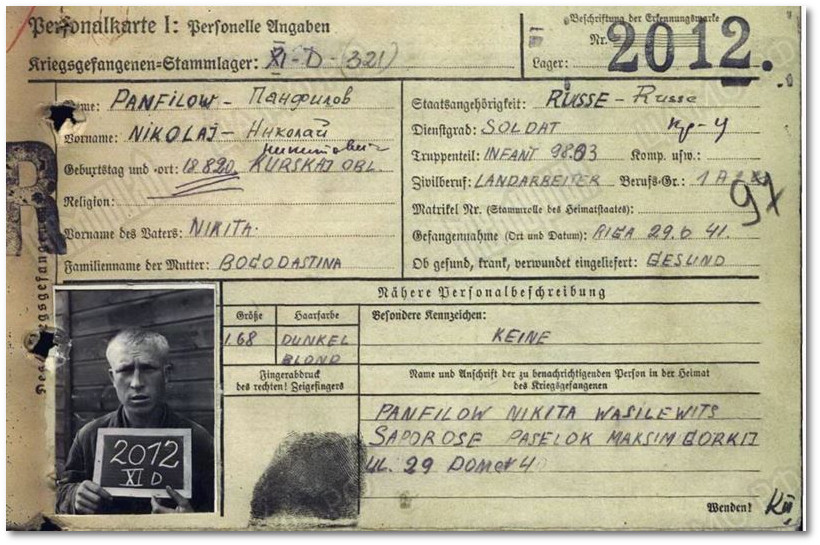 Personalkarte I: Personelle Angaben
Beschriftung der Erkennungsmarke
Nr. 2012.
Kriegsgefangenen-Stammlager: XI-D-(321)
Lager:
Name: PANFILOW - Панфилов
Staatsangehörigkeit: RUSSE - Russe
Vorname: NIKOLAJ - Николай
Никитович
Dienstgrad: SOLDAT
Truppenteil: INFANT Komp. usw.:
Geburtstag und -ort: 18.8.20. KURSKAJ OBL.
Zivilberuf: LANDARBEITER Berufs-Gr.: 1 A
97
Religion:
Matrikel Nr. (Stammrolle des Heimatstaates):
Vorname des Vaters: NIKITA.
Gefangennahme (Ort und Datum): RIGA 29.6.41.
Familienname der Mutter: BOGODASTINA
Ob gesund, krank, verwundet eingeliefert: GESUND
Nähere Personalbeschreibung
Größe
Haarfarbe
Besondere Kennzeichen:
1.68
DUNKEL
BLOND
KEINE
Fingerabdruck
des rechten! Zeigefingers
Name und Anschrift der zu benachrichtigenden Person in der Heimat
des Kriegsgefangenen
PANFILOW NIKITA WASILEWITS
SAPOROSE PASELOK MAKSIM GORKIJ
UL. 29
2012
XI D
Wenden!